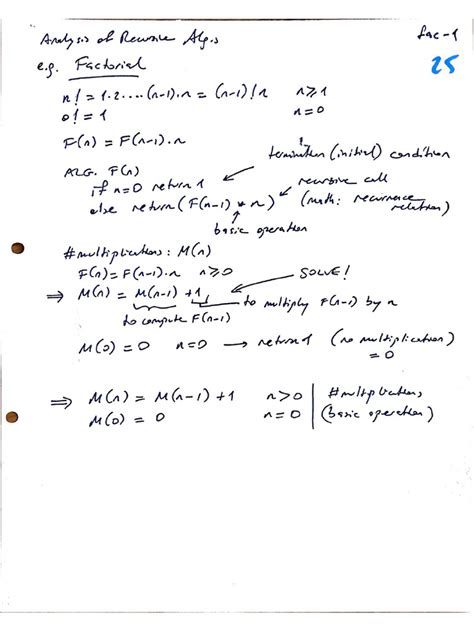 Analysis of Recursive Alg.s fac-1
e.g. Factorial 25
n! = 1·2····(n-1)·n = (n-1)!n n≥1
0! = 1 n=0
F(n) = F(n-1)·n
termination (initial) condition
ALG. F(n)
if n=0 return 1
recursive call
else return (F(n-1) * n) (math: recurrence
relation)
basic operation
#multiplications: M(n)
F(n)=F(n-1)·n n≥0
SOLVE!
⇒ M(n) = M(n-1) +1
to multiply F(n-1) by n
to compute F(n-1)
M(0) = 0 n=0 → return 1 (no multiplication)
= 0
⇒ M(n) = M(n-1) +1 n>0 | #multiplications
M(0) = 0 n=0 | (basic operation)